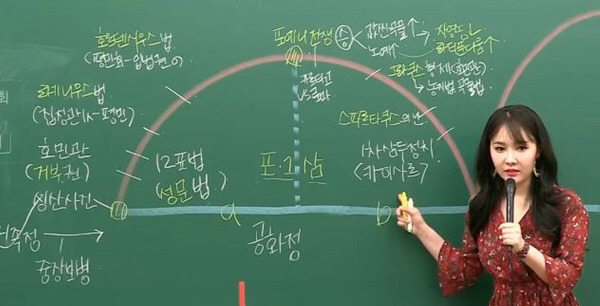 호르텐시우스법
(평민회-입법권 O)
리키니우스법
(집정관1-평민)
호민관
(거부권)
성산사건
왕족정
중장보병
12표법
(성문법)
포에니전쟁 승
카르타고
VS 로마
값싼곡물↑
노예↑
자영농↓
라티푼디움↑
그라쿠스 형제(호민관)
농지법 곡물법
스파르타쿠스의 난
1차삼두정치
(카이사르)
포.그.삼
a
b
공화정